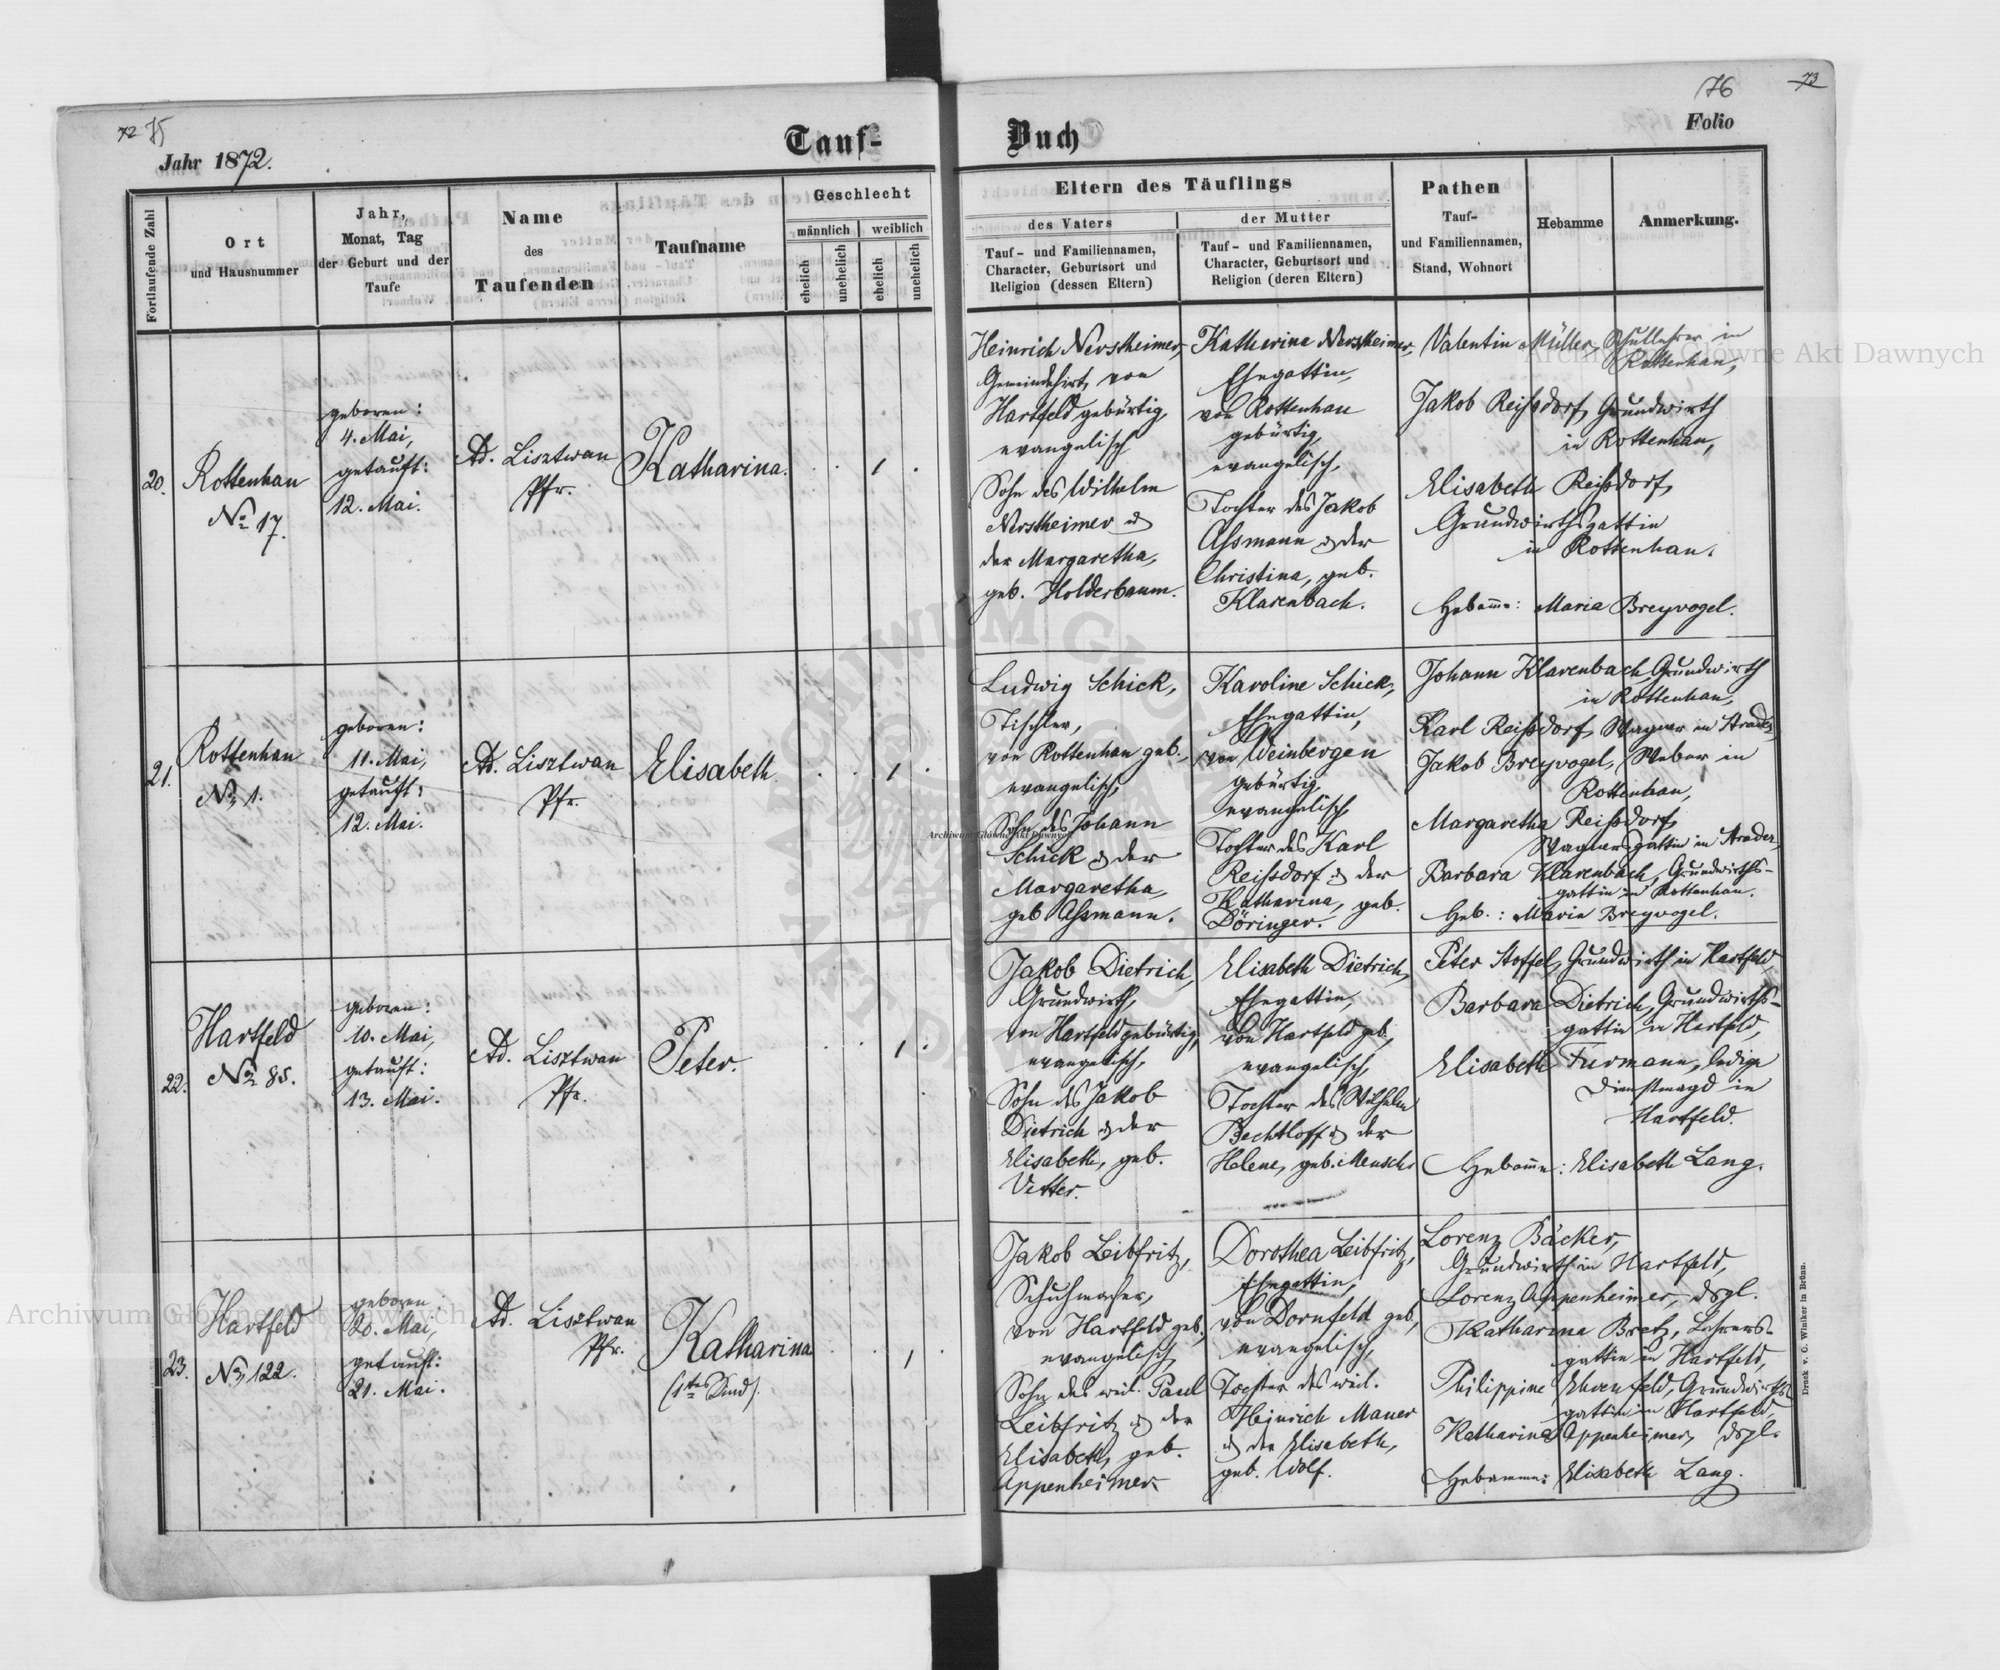 72 75
Jahr 1872.
Tauf-
Buch
76
73
Folio
Fortlaufende Zahl
Ort
und Hausnummer
Jahr,
Monat, Tag
der Geburt und der
Taufe
Name
des
Taufenden
Taufname
Geschlecht
männlich
weiblich
ehelich
unehelich
ehelich
unehelich
Eltern des Täuflings
des Vaters
Tauf- und Familiennamen,
Character, Geburtsort und
Religion (dessen Eltern)
der Mutter
Tauf- und Familiennamen,
Character, Geburtsort und
Religion (deren Eltern)
Pathen
Tauf-
und Familiennamen,
Stand, Wohnort
Hebamme
Anmerkung.
20.
Rottenhan
No 17.
geboren:
4. Mai,
getauft:
12. Mai.
Ad. Lisztwan
Pfr.
Katharina.
1
Heinrich Nerstheimer,
Gemeindehirt, von
Hartfeld gebürtig,
evangelisch
Sohn des Wilhelm
Nerstheimer u
der Margaretha,
geb. Holderbaum.
Katharina Nerstheimer,
Ehegattin,
von Rottenhan
gebürtig,
evangelisch,
Tochter des Jakob
Assmann u der
Christina, geb.
Klarenbach.
Valentin Müller, Schullehrer in
Rottenhan,
Jakob Reißdorf, Grundwirth
in Rottenhan,
Elisabeth Reißdorf,
Grundwirthsgattin
in Rottenhan.
Hebamme: Maria Breyvogel.
21.
Rottenhan
No 1.
geboren:
11. Mai,
getauft:
12. Mai.
Ad. Lisztwan
Pfr.
Elisabeth
1
Ludwig Schick,
Tischler,
von Rottenhan geb.,
evangelisch,
Sohn des Johann
Schick u der
Margaretha,
geb Assmann.
Karoline Schick,
Ehegattin,
von Weinbergen
gebürtig,
evangelisch,
Tochter des Karl
Reißdorf u der
Katharina, geb.
Döringer.
Johann Klarenbach, Grundwirth
in Rottenhan,
Karl Reißdorf, Wagner in
Jakob Breyvogel, Weber in
Rottenhan,
Margaretha Reißdorf,
Wagnersgattin in
Barbara Klarenbach, Grundwirths-
gattin in Rottenhan.
Heb.: Maria Breyvogel.
22.
Hartfeld
No 85.
geboren:
10. Mai,
getauft:
13. Mai.
Ad. Lisztwan
Pfr.
Peter.
1
Jakob Dietrich,
Grundwirth,
von Hartfeld gebürtig,
evangelisch,
Sohn des Jakob
Dietrich u der
Elisabeth, geb.
Vetter.
Elisabeth Dietrich,
Ehegattin,
von Hartfeld geb.,
evangelisch,
Tochter des Wilhelm
Bechtloff u der
Helene, geb. Mensch.
Peter Stoffel, Grundwirth in Hartfeld,
Barbara Dietrich, Grundwirths-
gattin in Hartfeld,
Elisabeth Furmann, ledige
Dienstmagd in
Hartfeld.
Hebamme: Elisabeth Lang.
23.
Hartfeld
No 122.
geboren
20. Mai,
getauft:
21. Mai.
Ad. Lisztwan
Pfr.
Katharina
(1tes Kind).
1
Jakob Leibfritz,
Schuhmacher,
von Hartfeld geb.,
evangelisch,
Sohn des weil. Paul
Leibfritz u der
Elisabeth, geb.
Appenheimer.
Dorothea Leibfritz,
Ehegattin,
von Dornfeld geb.,
evangelisch,
Tochter des weil.
Heinrich Mauer
u der Elisabeth,
geb. Wolf.
Lorenz Bäcker,
Grundwirth in Hartfeld,
Lorenz Appenheimer, dsgl.
Katharina Bretz, Lehrers-
gattin in Hartfeld,
Philippine Ehrenfeld, Grundwirths-
gattin in Hartfeld,
Katharina Appenheimer, dsgl.
Hebamme: Elisabeth Lang.
Druck v. C. Winiker in Brünn.
Archiwum Główne Akt Dawnych
Archiwum Główne Akt Dawnych
Archiwum Główne Akt Dawnych